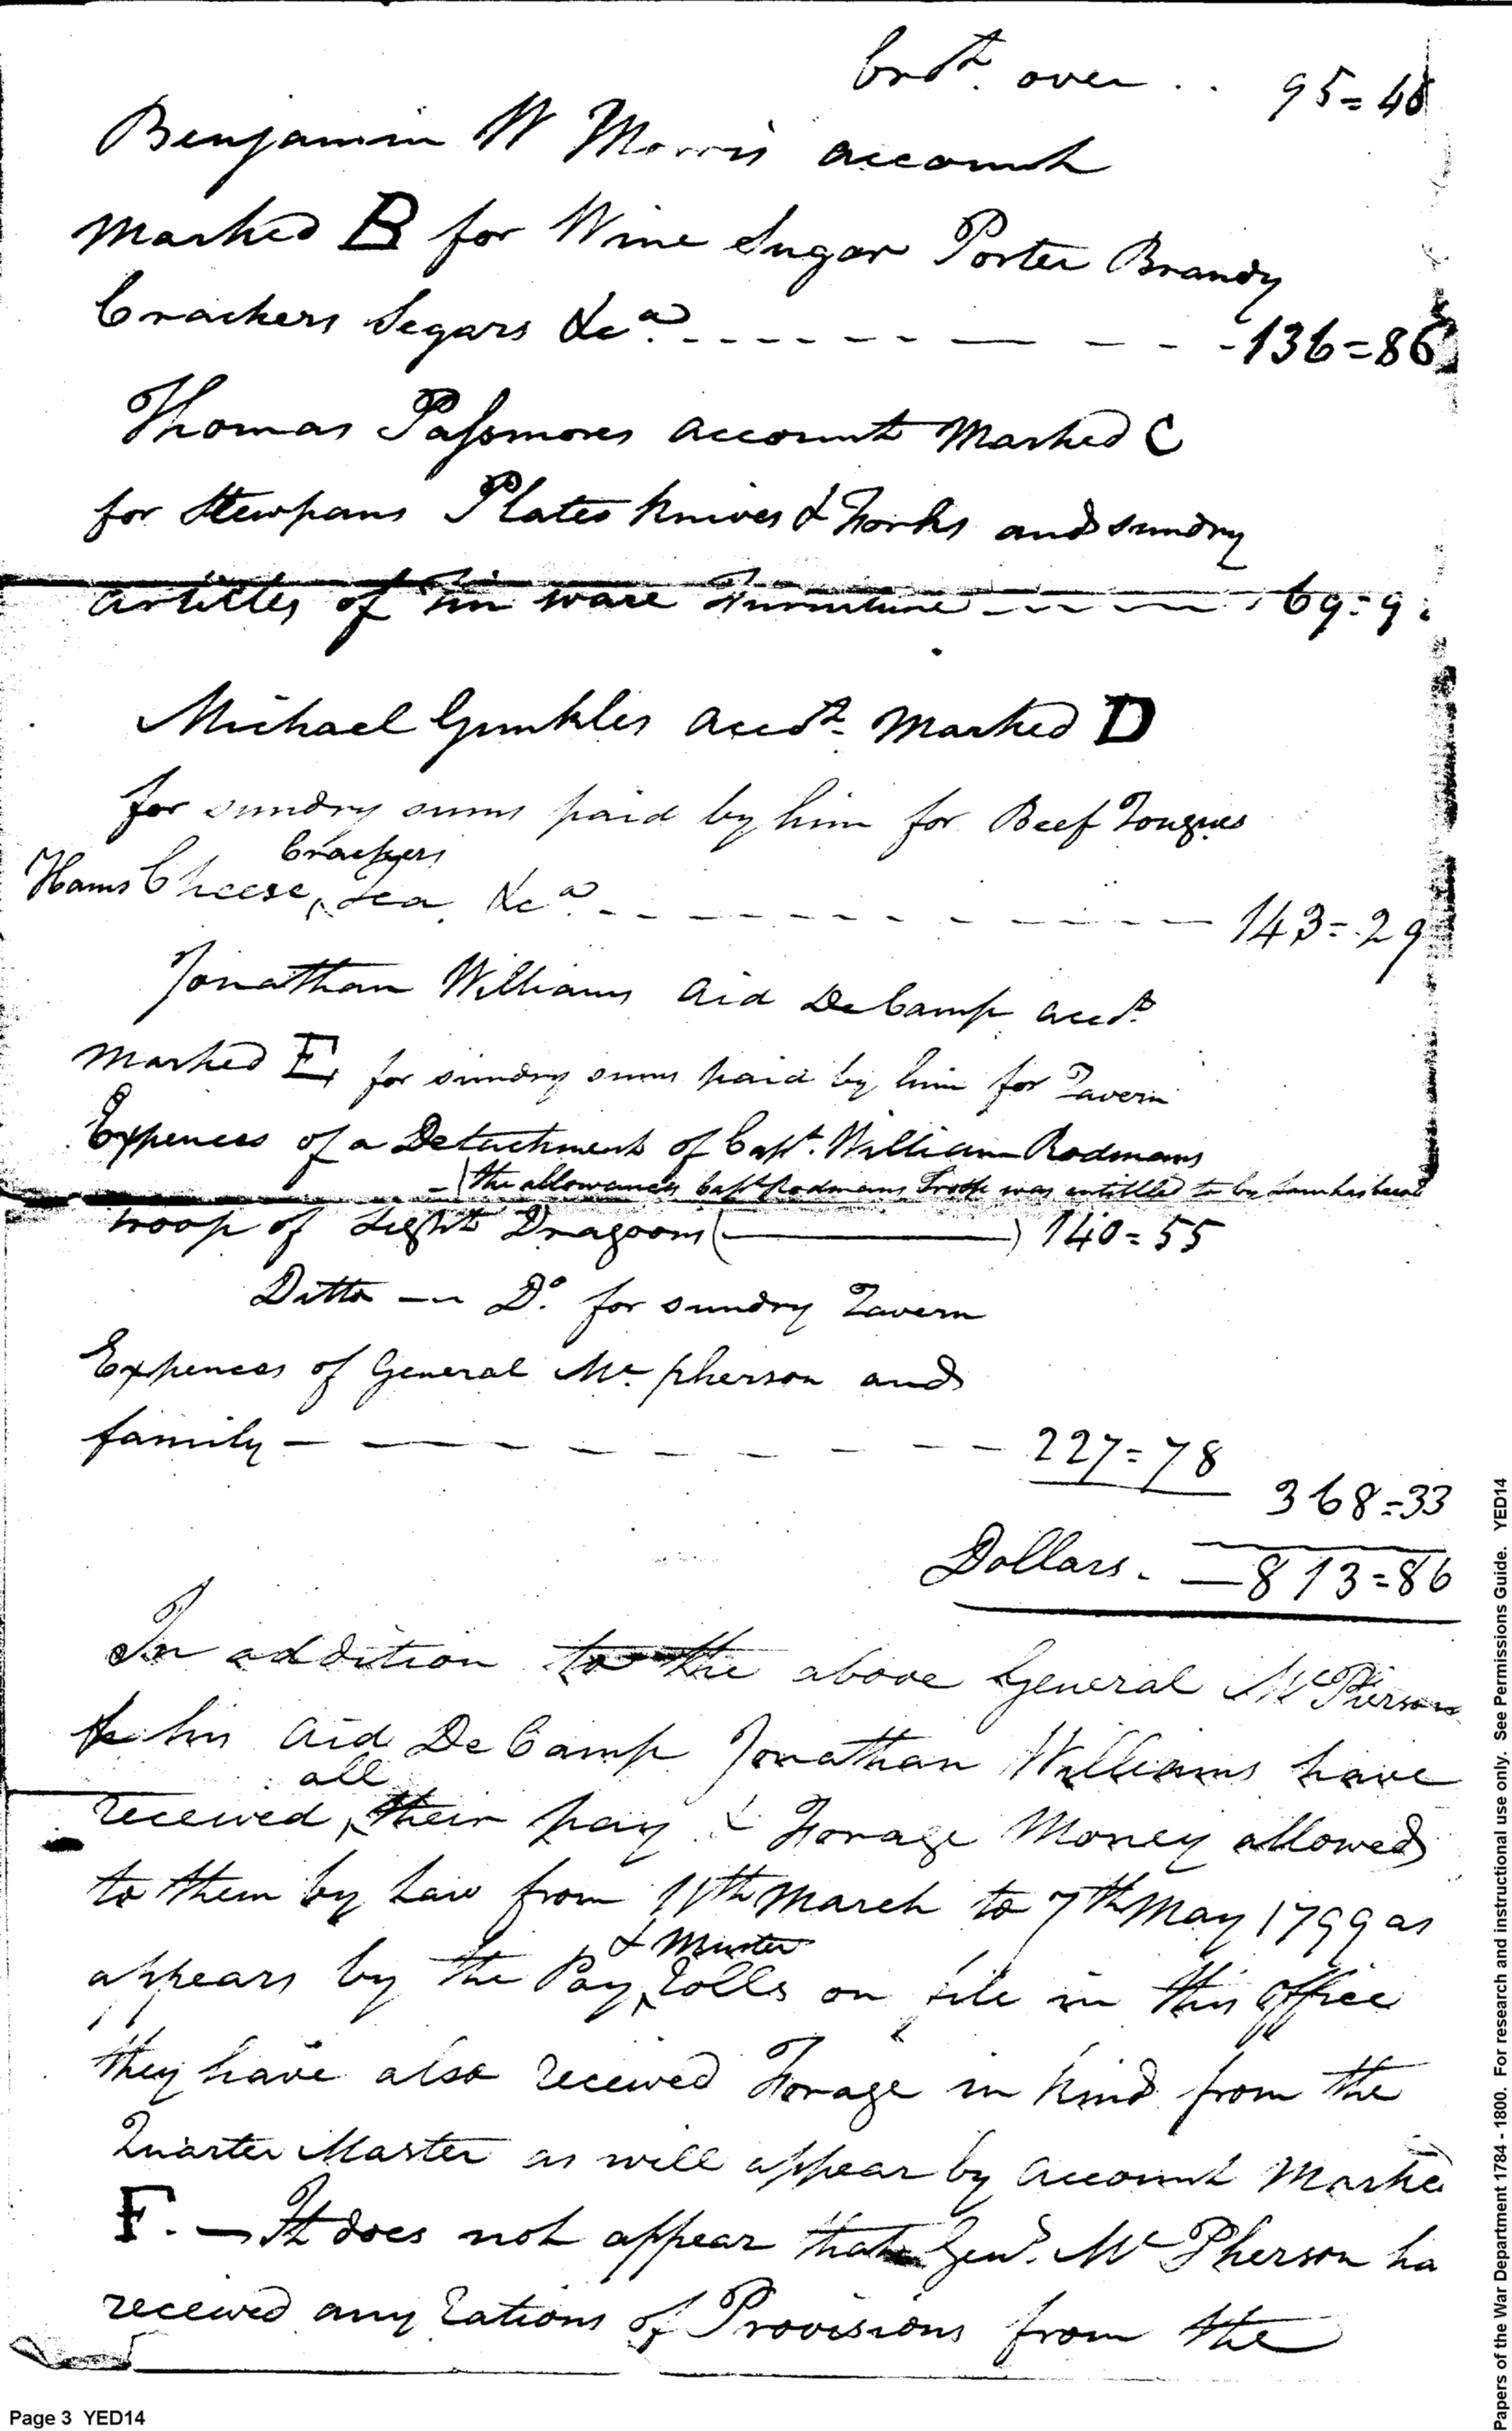 brôt. over .. 95=48
Benjamin W Morris account
marked B for Wine Sugar Porter Brandy
Crackers Segars &ca. - - - - - - - - - - 136=86
Thomas Passmores account marked C
for Stewpans Plates Knives & Forks and sundry
articles of Tin ware Furniture - - - - - 69=9
Michael Gunkles accot. marked D
for sundry sums paid by him for Beef Tongues
Crackers
Hams Cheese, ‸ Tea, &ca. - - - - - - - - - - 143=29
Jonathan Williams Aid De Camp accot.
marked E, for sundry sums paid by him for Tavern
Expences of a Detachment of Capt. William Rodmans
- (the allowances Capt Rodmans Troop was entitled to by Law has been
troop of Light Dragoons (————) 140=55
Ditto — Do. for sundry Tavern
Expences of General Mc.pherson and
family - - - - - - - - - - 227=78
368=33
Dollars. — 813=86
In addition to the above General McPierson
& his Aid De Camp Jonathan Williams have
all
received ‸ their pay & Forage Money allowed
to them by Law from 11th March to 7th May 1799 as
& Muster
appears by the Pay ‸ rolls on file in this office
they have also received Forage in kind from the
Quarter Master as will appear by account Marked
F. — It does not appear that Genl. McPherson ha
received any rations of Provisions from the
Page 3 YED14
Papers of the War Department 1784 - 1800. For research and instructional use only. See Permissions Guide. YED14